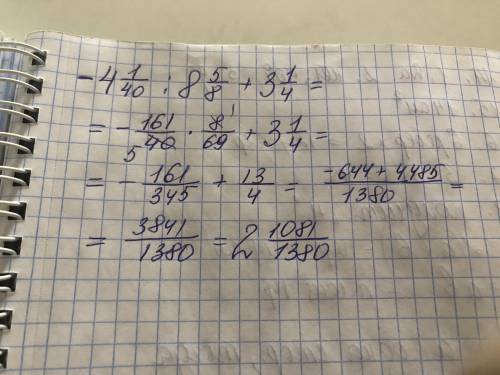 -4 1/40 : 8 5/8 + 3 1/4 =
= - 161/40 5 · 8/69 1 + 3 1/4 =
= - 161/345 + 13/4 = -644+4485/1380 =
= 3841/1380 = 2 1081/1380